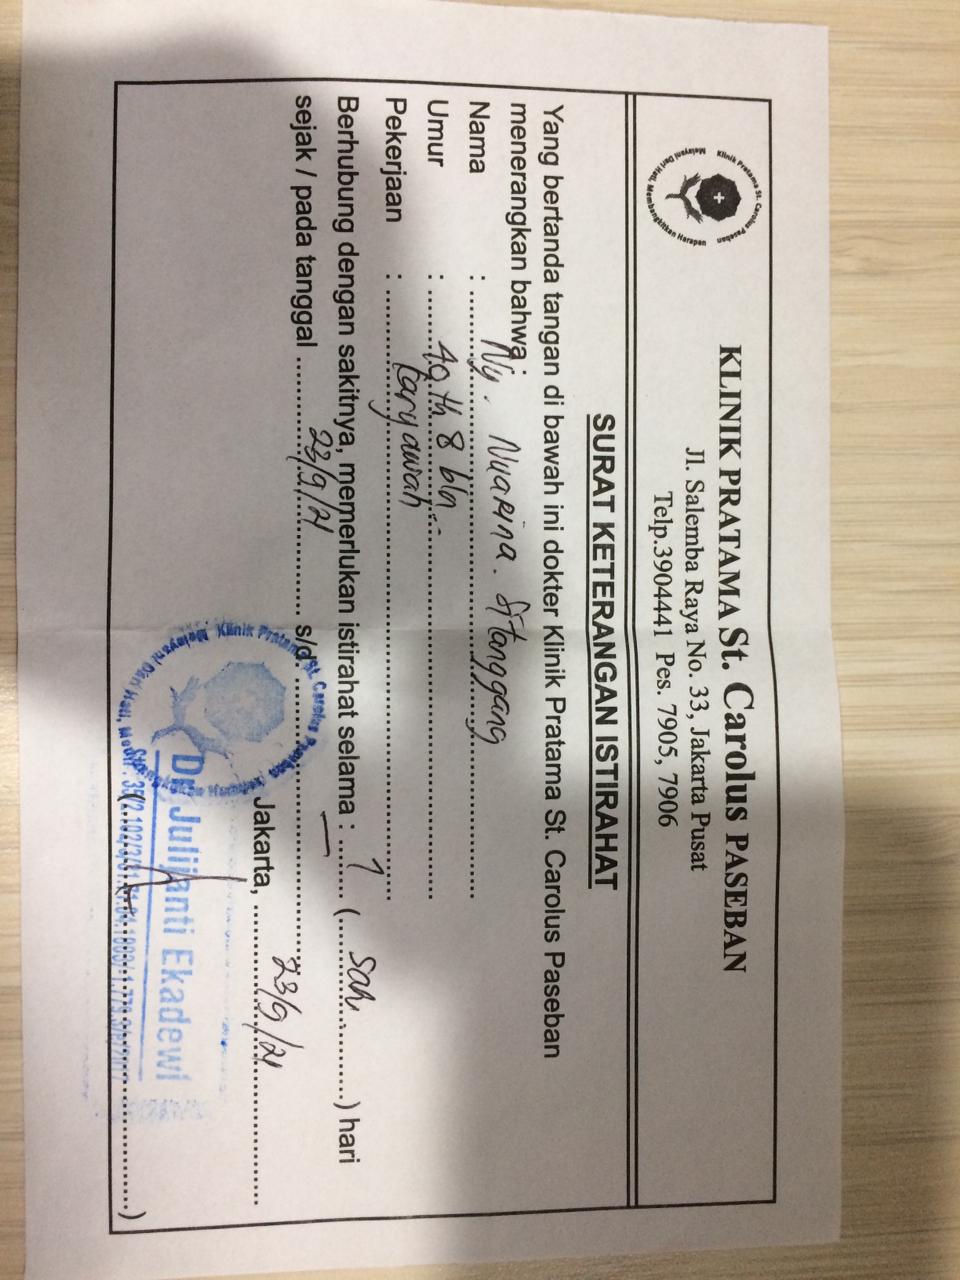 Klinik Pratama St. Carolus Paseban
Melayani Dari Hati, Membangkitkan Harapan
KLINIK PRATAMA St. Carolus PASEBAN
Jl. Salemba Raya No. 33, Jakarta Pusat
Telp.3904441 Pes. 7905, 7906
SURAT KETERANGAN ISTIRAHAT
Yang bertanda tangan di bawah ini dokter Klinik Pratama St. Carolus Paseban
menerangkan bahwa :
Nama : Ny. Nuarina. Sitanggang
Umur : 40 th 8 bln
Pekerjaan : Karyawah
Berhubung dengan sakitnya, memerlukan istirahat selama : 1 (satu) hari
sejak / pada tanggal 23/9/21 s/d —
Jakarta, 23/9/21
Klinik Pratama St. Carolus Paseban
Melayani Dari Hati,
Dr Julijanti Ekadewi